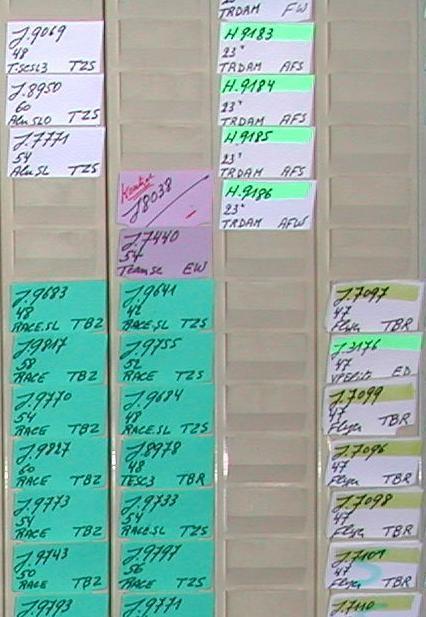 J.9069
48
T.SCSL3 TZS
J.8950
60
Alu SLO TZS
J.7771
54
Alu SL TZS
J.9683
48
RACE.SL TBZ
J9817
58
RACE TBZ
J.9770
54
RACE TBZ
J.9827
60
RACE TBZ
J.9773
54
RACE TBZ
J.9743
50
RACE TBZ
J.9793
J8038
J.7440
54
Team SC EW
J.9641
42
RACE,SL TZS
J.9755
52
RACE TZS
J.9684
48
RACE.SL TZS
J8978
48
TESC3 TBR
J.9733
54
RACE.SL TZS
J.9797
56
RACE TZS
J.9771
TRDAM FW
H.9183
23"
TRDAM AFS
H.9184
23"
TRDAM AFS
H.9185
23"
TRDAM AFS
H.9186
23"
TRDAM AFW
J.7097
47
Flyer TBR
J.3176
47
ED
J.7099
47
Flyer TBR
J.7096
47
Flyer TBR
J.7098
47
Flyer TBR
J.7101
47
Flyer TBR
J.7110